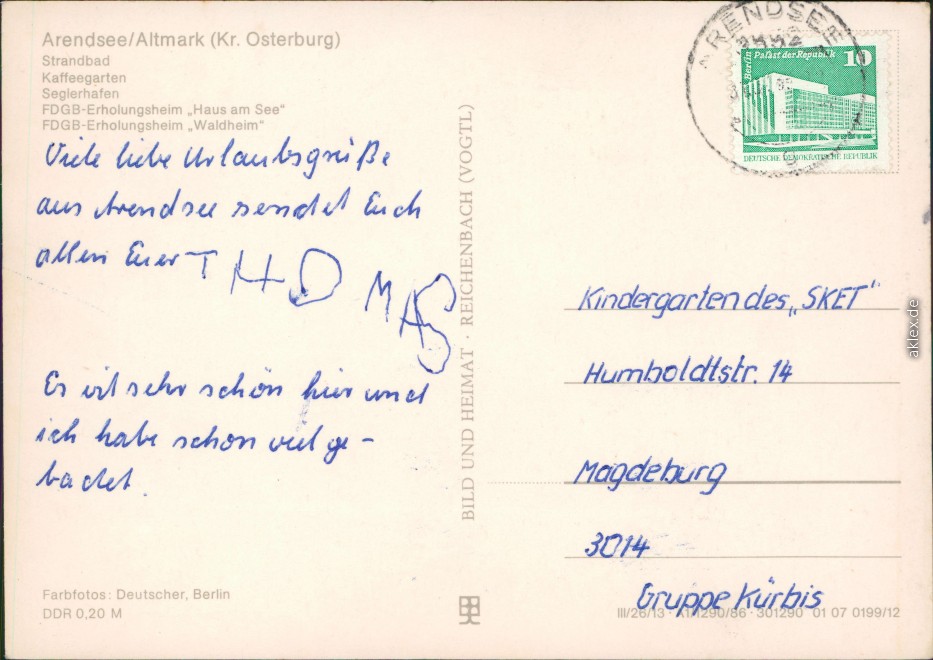 Arendsee/Altmark (Kr. Osterburg)
Strandbad
Kaffeegarten
Seglerhafen
FDGB-Erholungsheim „Haus am See“
FDGB-Erholungsheim „Waldheim“
Viele liebe Urlaubsgrüße
aus Arendsee sendet Euch
allen Euer THOMAS
Es ist sehr schön hier und
ich habe schon viel ge-
badet.
Farbfotos: Deutscher, Berlin
DDR 0,20 M
BILD UND HEIMAT · REICHENBACH (VOGTL)
ARENDSEE
Berlin Palast der Republik 10
DEUTSCHE DEMOKRATISCHE REPUBLIK
Kindergarten des „SKET“
Humboldtstr. 14
Magdeburg
3014
Gruppe Kürbis
III/26/13 · A1/1290/86 · 301290 01 07 0199/12
aklex.de